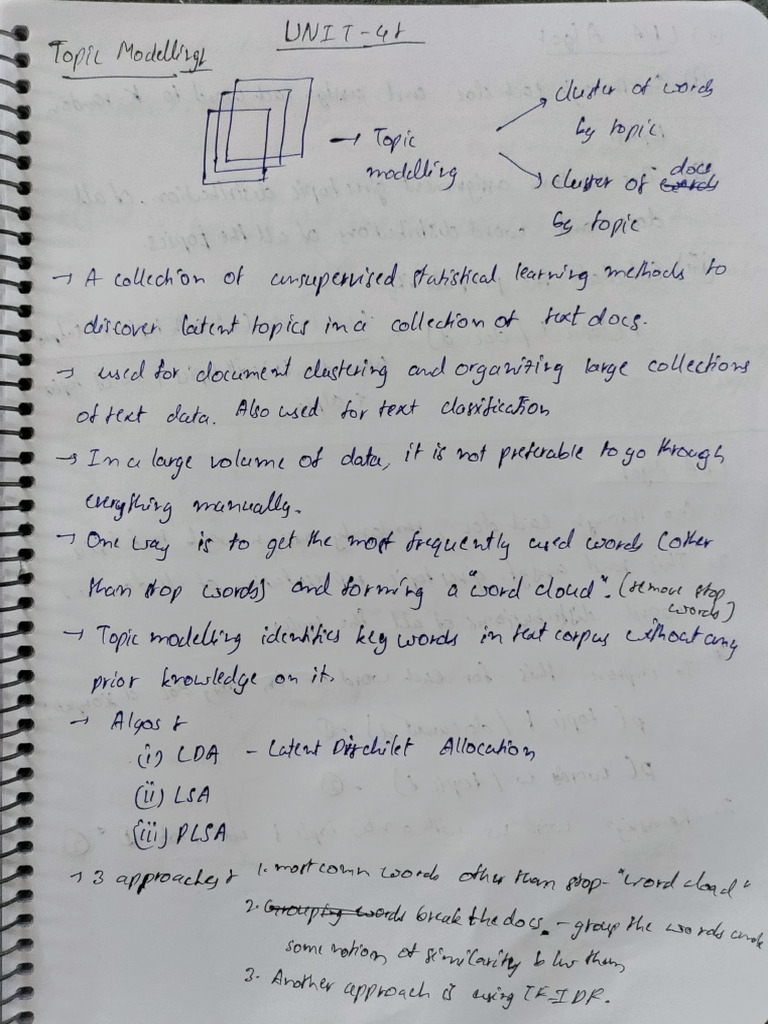 UNIT-4:
Topic Modelling:
→ Topic modelling
cluster of words by topic.
cluster of words docs by topic
→ A collection of unsupervised statistical learning methods to
discover latent topics in a collection of text docs.
→ used for document clustering and organizing large collections
of text data. Also used for text classification
→ In a large volume of data, it is not preferable to go through
everything manually.
→ One way is to get the most frequently used words (other
than stop words) and forming a "word cloud". (remove stop
words)
→ Topic modelling identifies key words in text corpus without any
prior knowledge on it.
→ Algos:
(i) LDA - Latent Dirchilet Allocation
(ii) LSA
(iii) PLSA
→ 3 approaches: 1. most comn words other than stop - "word cloud"
2. Grouping words break the docs. - group the words
some notion of similarity b/w them
3. Another approach is using TF-IDF.